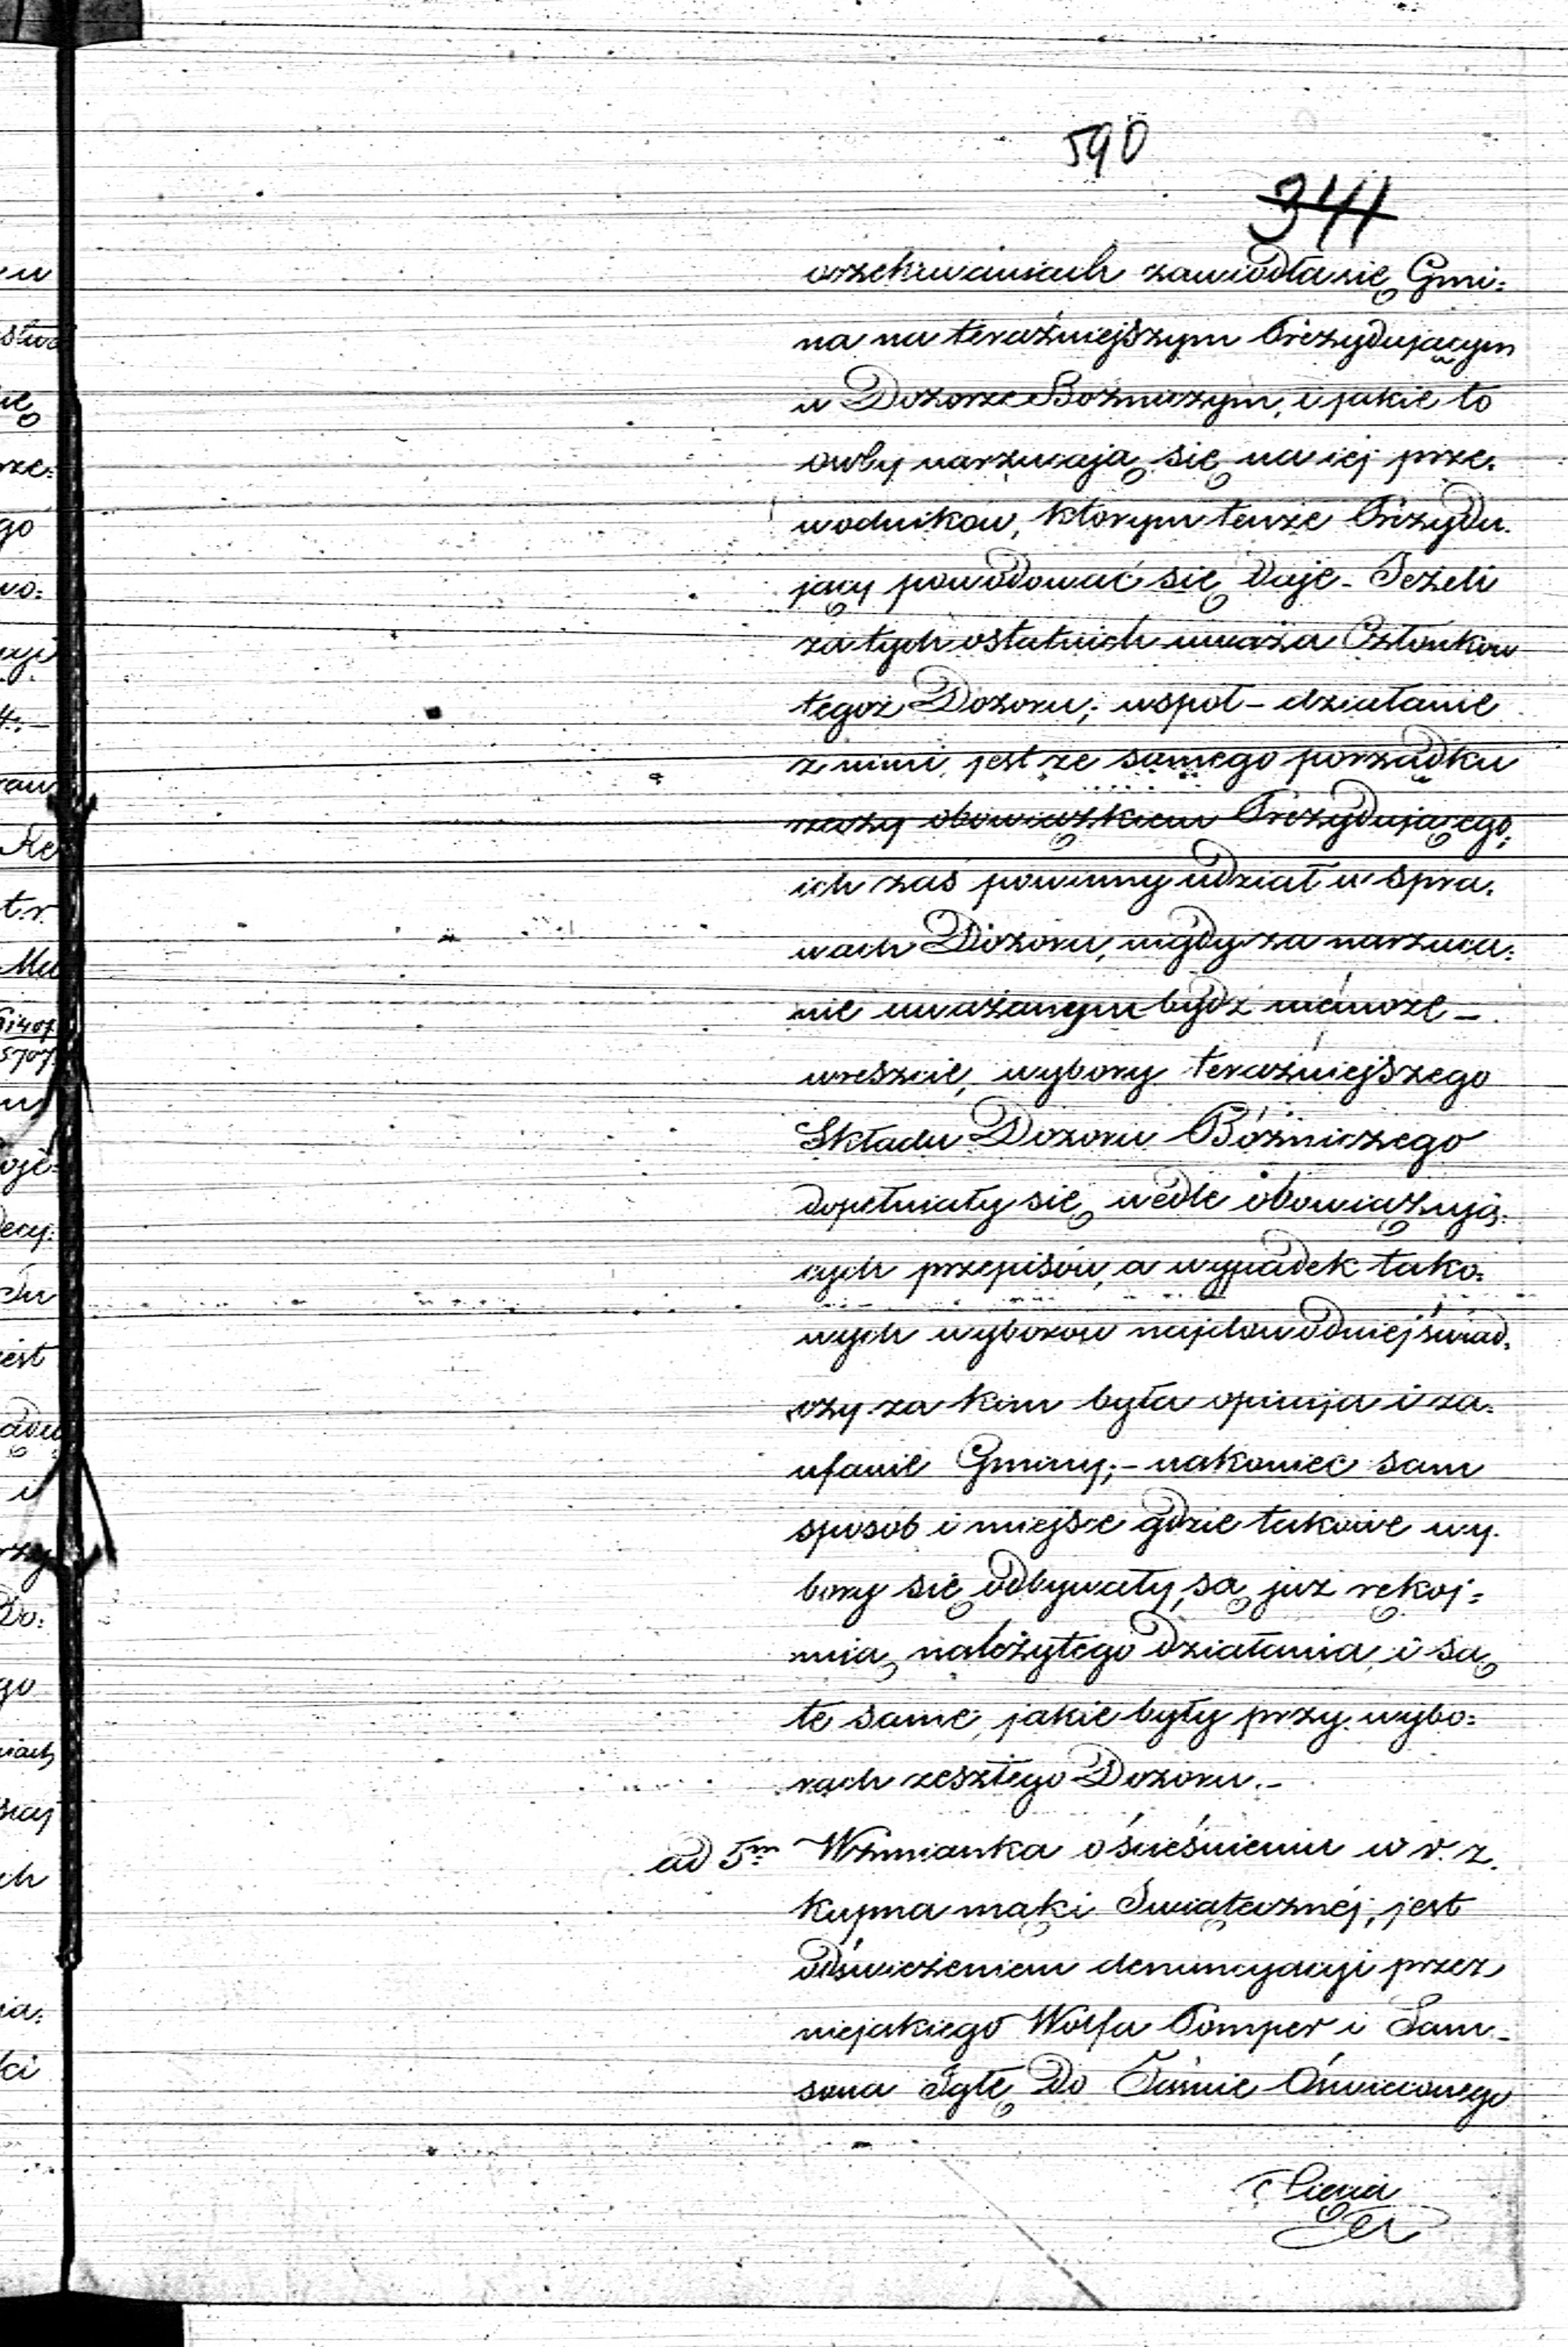 590
344
oczekiwaniach zawiodła się Gmi:
na na teraźniejszym Prezydującym
w Dozorze Bożniczym, i jakie to
osoby narzucają się na iej prze.
wodnikow, którym tenże Prezydu.
jący powodować się daje - Jeżeli
za tych ostatnich uważa Członkow
tegoż Dozoru; wspoł - działanie
z nimi, jest ze samego porządku
rzeczy obowiązkiem Prezydującego;
ich zaś powinny udział w spra.
wach Dozoru, nigdy za narzuca:
nie uważanym bydź niemoże -
wreszcie, wybory teraźniejszego
Składu Dozoru Bóżniczego
dopełniały się wedle obowiązują.
cych przepisów, a wypadek tako:
wych wyborow najdowodniej świad.
czy za kim była opinija i za.
ufanie Gminy; - nakoniec sam
sposób i miejsce gdzie takowe wy.
bory się odbywały, są już rękoj=
mią należytego działania, i są
te same, jakie były przy wybo:
rach zeszłego Dozoru. -
ad 5m Wzmianka o ścieśnieniu w r. z.
kupna mąki Świątecznéj, jest
odświeżeniem denuncyacyi przez
niejakiego Wolfa Pomper i Sam-
sona Igłę do Jaśnie Oświeconego